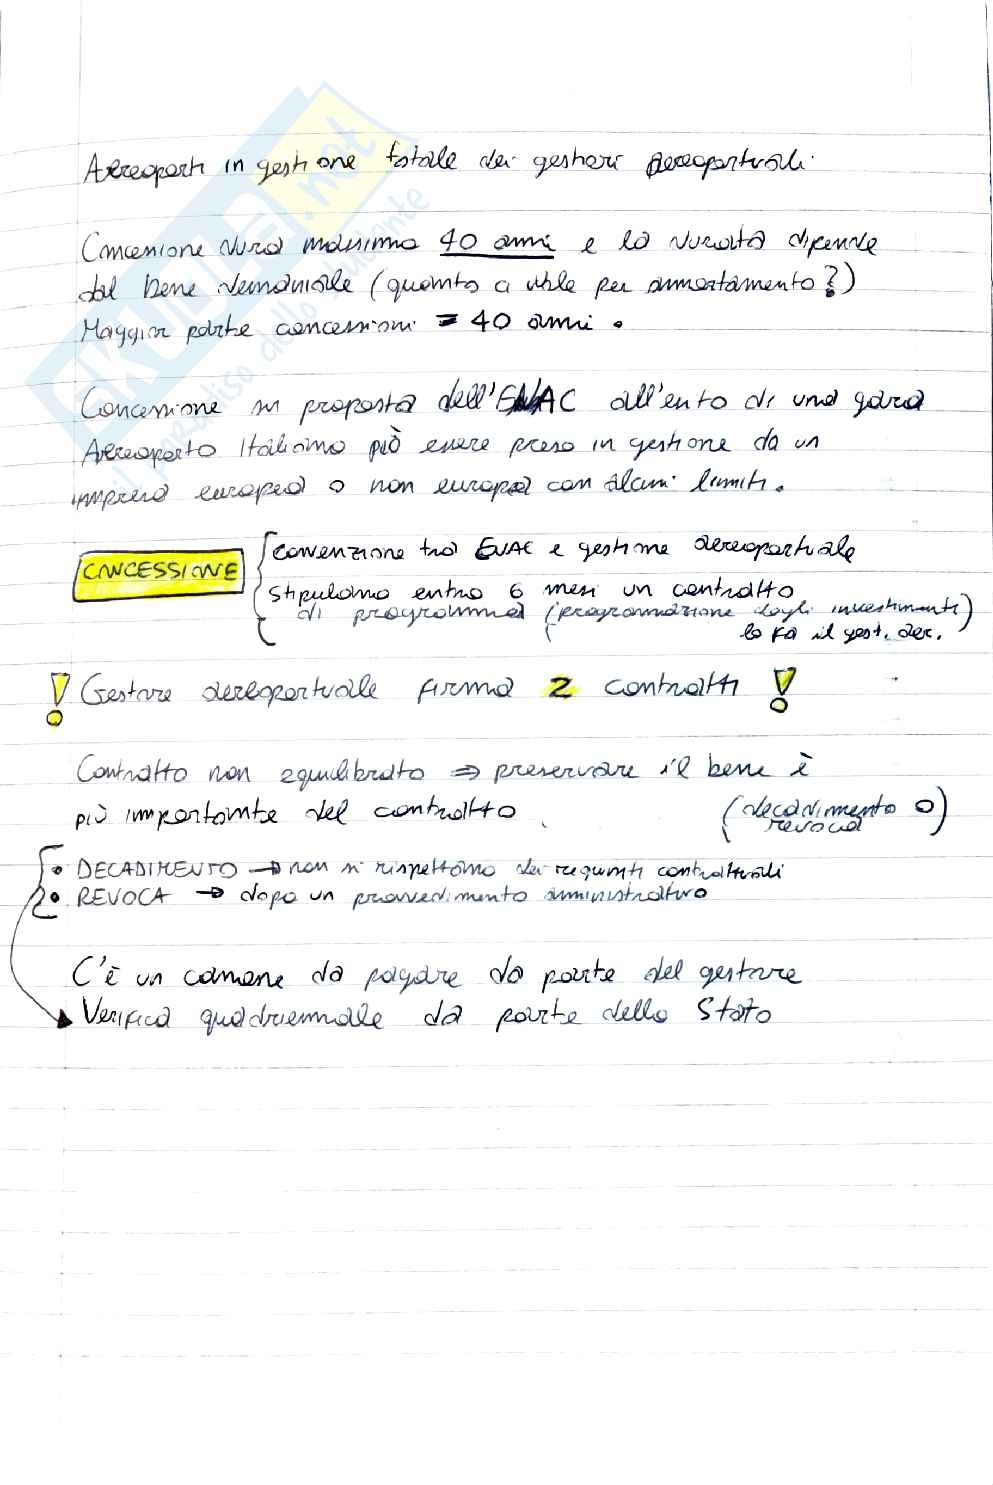 Aereoporti in gestione totale dei gestori aereoportuali.
Concessione dura massimo 40 anni e la durata dipende
dal bene demaniale (quanto è utile per ammortamento?)
Maggior parte concessioni = 40 anni.
Concessione su proposta dell'ENAC all'ento di una gara
Aereoporto Italiano può essere preso in gestione da un
impresa europea o non europea con alcuni limiti.
CONCESSIONE
convenzione tra ENAC e gestione aereoportuale
stipulano entro 6 mesi un contratto
di programma (programmazione degli investimenti)
lo fa il gest. aer.
! Gestore aereoportuale firma 2 contratti !
Contratto non equilibrato => preservare il bene è
più importante del contratto
(decadimento o
revoca)
• DECADIMENTO → non si rispettano dei requisiti contrattuali
• REVOCA → dopo un provvedimento amministrativo
C'è un canone da pagare da parte del gestore
Verifica quadriennale da parte dello Stato
skuola.net
il paradiso dello studente